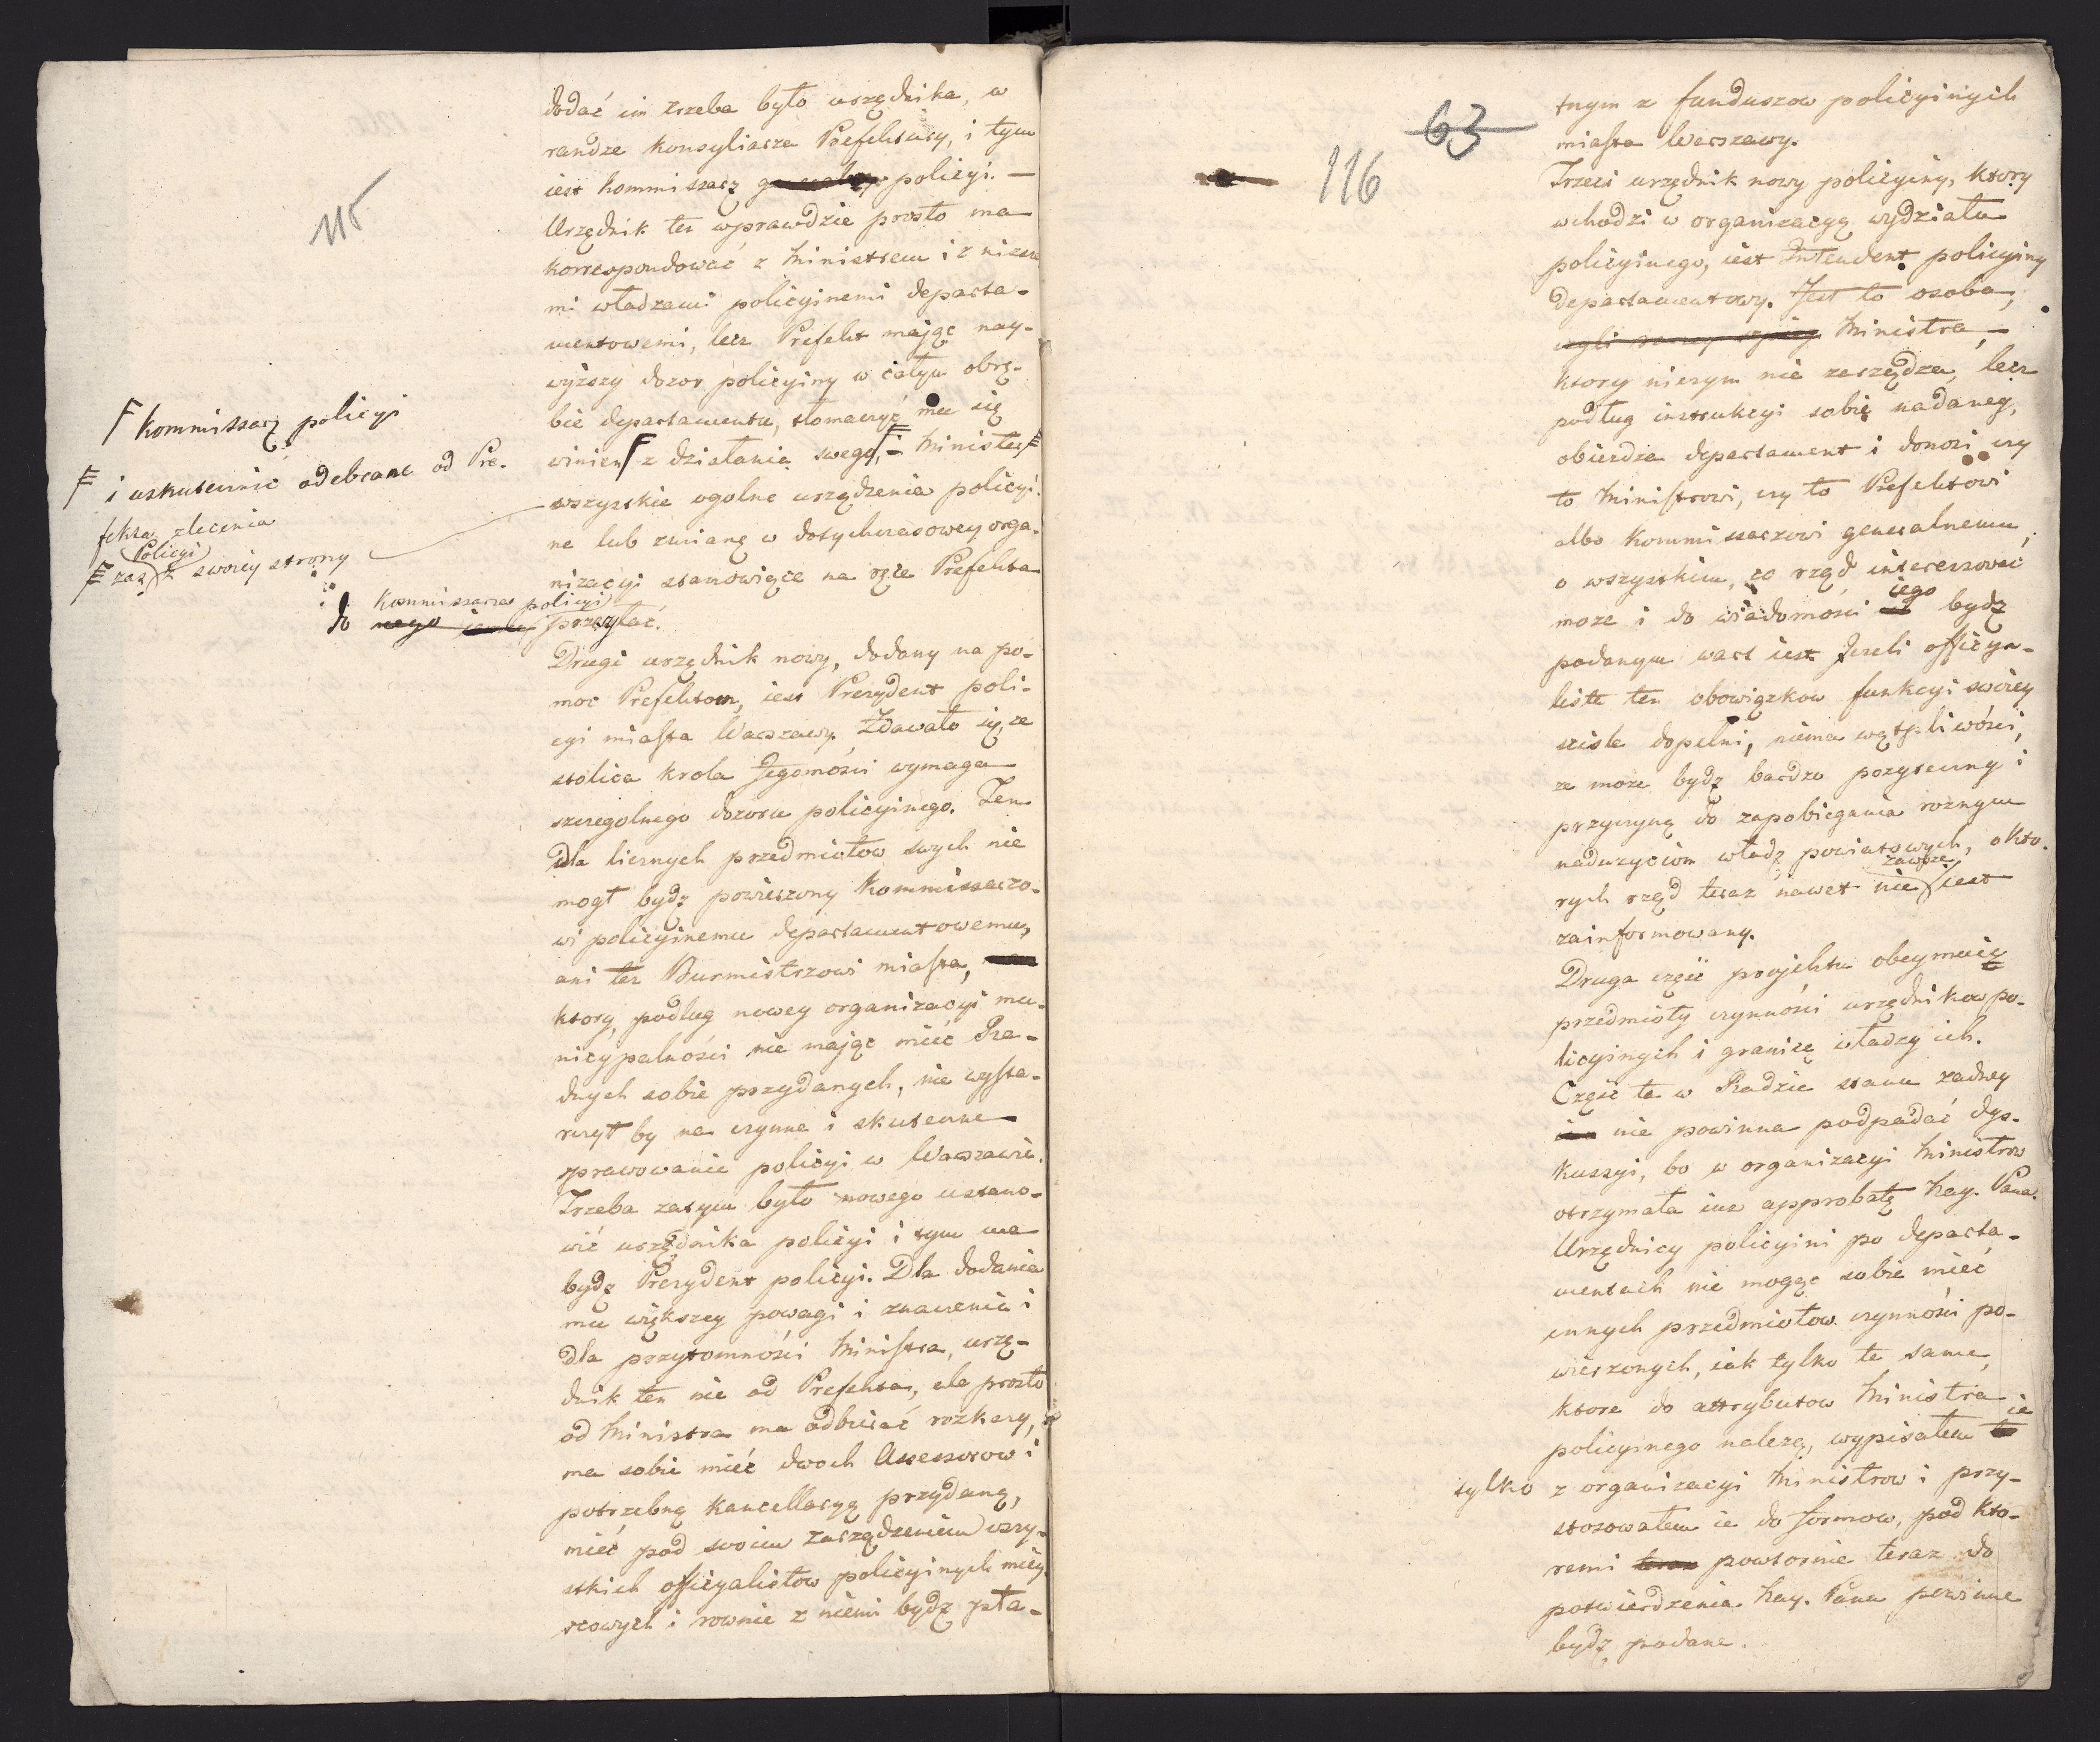 115
dodać im trzeba było urzędnika, w
randze konsyliarza Prefektury, i tym
iest kommissarz policyi. —
Urzędnik ten wprawdzie prosto ma
korrespondować z Ministrem i z nizsze
mi władzami policyjnemi departa-
mentowemi, lecz Prefekt mając nay-
wyższy dozor policyiny w całym obrę-
bie departamentu, tłomaczyć mu się
winien z działania swego, – Minister
wszystkie ogolne urządzenia policyi
ne lub zmianę w dotychczasowey orga-
nizacyi stanowiące na ręce Prefekta
Kommissarza policyi
do nego przesyłać.
Ꞙ kommissarz policyi
i uskutecznić odebrane od Pre-
fekta zlecenia
Policyi
zaś z swoiey strony
Drugi urzędnik nowy, dodany na po-
moc Prefektom, iest Prezydent poli-
cyi miasta Warszawy. Zdawało się, ze
stolica Krola Jegomości wymaga
szczegolnego dozoru policyinego. Ten
dla licznych przedmiotow swych nie
mogł bydz powierzony Kommissarzo-
wi policyinemu departamentowemu,
ani tez Burmistrzowi miasta,
ktory, podług nowey organizacyi mu-
nicypalności nie mając mieć Ra-
dnych sobie przydanych, nie wysta-
rczył by na czynne i skuteczne
sprawowanie policyi w Warszawie.
Trzeba zatym było nowego ustano-
wić urzędnika policyi i tym ma
bydz Prezydent policyi. Dla dodania
mu większey powagi i znaczenia i
dla przytomności Ministra, urzę-
dnik ten nie od Prefekta, ale prosto
od Ministra ma odbierać rozkazy,
ma sobie mieć dwoch Assessorow i
potrzebną kancellaryą przydaną,
mieć pod swoim zarządzeniem wszy-
stkich officyalistow policyinych miey-
scowych i rownie z niemi bydz pła-
63
116
tnym z funduszow policyinych
miasta Warszawy.
Trzeci urzędnik nowy policyiny, ktory
wchodzi w organizacyą wydziału
policyinego, iest Intendent policyiny
departamentowy. Jest to osoba,
Ministra, –
ktory niczym nie zarządza, lecz
podług instrukcyi sobie nadaney,
obiezdza departament i donosi czy
to Ministrowi, czy to Prefektowi
albo Kommissarzowi generalnemu,
o wszystkim, co rząd interessować
moze i do wiadomości iego bydz
podanym wart iest. Jezeli officya-
lista ten obowiązkow funkcyi swoiey
sciśle dopełni, niema wątpliwości,
ze moze bydz bardzo pozyteczny i
przyczyną do zapobiegania roznym
naduzyciom władz powiatowych, o kto-
rych rząd teraz nawet nie zawsze iest
zainformowany.
Druga część projektu obeymuię
przedmioty czynności urzędnikow po-
licyinych i granicę władzy ich.
Część ta w Radzie stanu zadney
nie powinna podpadać dys-
kussyi, bo w organizacyi Ministrow
otrzymała iuz approbatę Nay. Pana.
Urzędnicy policyini po departa-
mentach nie mogąc sobie mieć
innych przedmiotow czynności po-
wierzonych, iak tylko te same,
ktore do attrybutow Ministra
policyinego nalezą, wypisałem ie
tylko z organizacyi Ministrow i przy-
stosowałem ie do formow, pod kto-
remi powtornie teraz do
potwierdzenia Nay. Pana powinne
bydz podane.